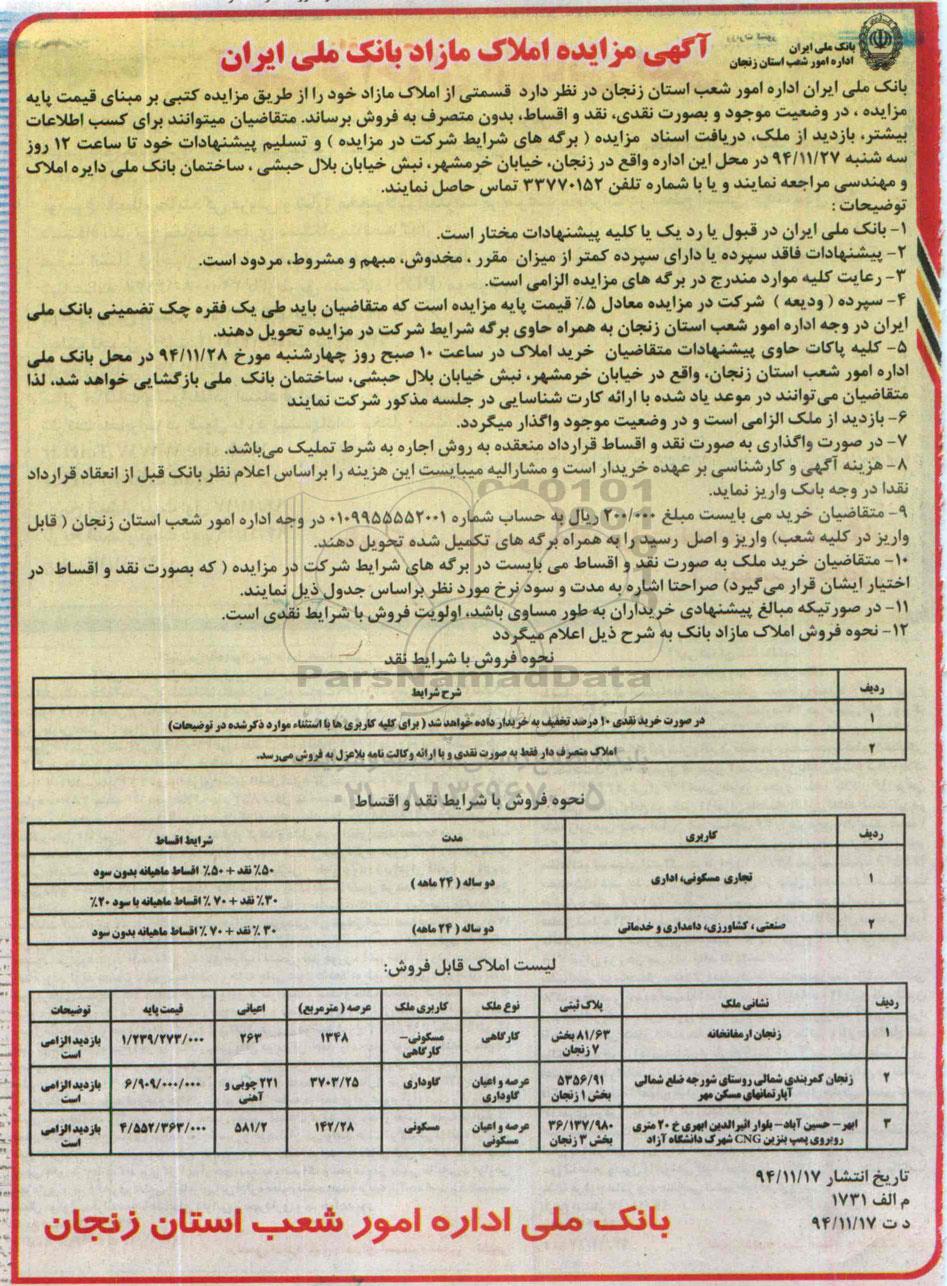 بانک ملی ایران
اداره امور شعب استان زنجان
آگهی مزایده املاک مازاد بانک ملی ایران
بانک ملی ایران اداره امور شعب استان زنجان در نظر دارد قسمتی از املاک مازاد خود را از طریق مزایده کتبی بر مبنای قیمت پایه
مزایده ، در وضعیت موجود و بصورت نقدی، نقد و اقساط، بدون متصرف به فروش برساند. متقاضیان میتوانند برای کسب اطلاعات
بیشتر، بازدید از ملک، دریافت اسناد مزایده ( برگه های شرایط شرکت در مزایده ) و تسلیم پیشنهادات خود تا ساعت ۱۲ روز
سه شنبه ۹۴/۱۱/۲۷ در محل این اداره واقع در زنجان، خیابان خرمشهر، نبش خیابان بلال حبشی ، ساختمان بانک ملی دایره املاک
و مهندسی مراجعه نمایند و یا با شماره تلفن ۳۳۷۷۰۱۵۲ تماس حاصل نمایند.
توضیحات :
۱- بانک ملی ایران در قبول یا رد یک یا کلیه پیشنهادات مختار است.
۲- پیشنهادات فاقد سپرده یا دارای سپرده کمتر از میزان مقرر ، مخدوش، مبهم و مشروط، مردود است.
۳- رعایت کلیه موارد مندرج در برگه های مزایده الزامی است.
۴- سپرده ( ودیعه ) شرکت در مزایده معادل ۵٪ قیمت پایه مزایده است که متقاضیان باید طی یک فقره چک تضمینی بانک ملی
ایران در وجه اداره امور شعب استان زنجان به همراه حاوی برگه شرایط شرکت در مزایده تحویل دهند.
۵- کلیه پاکات حاوی پیشنهادات متقاضیان خرید املاک در ساعت ۱۰ صبح روز چهارشنبه مورخ ۹۴/۱۱/۲۸ در محل بانک ملی
اداره امور شعب استان زنجان، واقع در خیابان خرمشهر، نبش خیابان بلال حبشی، ساختمان بانک ملی بازگشایی خواهد شد، لذا
متقاضیان می‌توانند در موعد یاد شده با ارائه کارت شناسایی در جلسه مذکور شرکت نمایند
۶- بازدید از ملک الزامی است و در وضعیت موجود واگذار میگردد.
۷- در صورت واگذاری به صورت نقد و اقساط قرارداد منعقده به روش اجاره به شرط تملیک می‌باشد.
۸- هزینه آگهی و کارشناسی بر عهده خریدار است و مشارالیه میبایست این هزینه را براساس اعلام نظر بانک قبل از انعقاد قرارداد
نقدا در وجه بانک واریز نماید.
۹- متقاضیان خرید می بایست مبلغ ۲۰۰/۰۰۰ ریال به حساب شماره ۰۱۰۹۹۵۵۵۵۲۰۰۱ در وجه اداره امور شعب استان زنجان ( قابل
واریز در کلیه شعب) واریز و اصل رسید را به همراه برگه های تکمیل شده تحویل دهند.
۱۰- متقاضیان خرید ملک به صورت نقد و اقساط می بایست در برگه های شرایط شرکت در مزایده ( که بصورت نقد و اقساط در
اختیار ایشان قرار می‌گیرد) صراحتا اشاره به مدت و سود نرخ مورد نظر براساس جدول ذیل نمایند.
۱۱- در صورتیکه مبالغ پیشنهادی خریداران به طور مساوی باشد، اولویت فروش با شرایط نقدی است.
۱۲- نحوه فروش املاک مازاد بانک به شرح ذیل اعلام میگردد
نحوه فروش با شرایط نقد
ردیف شرح شرایط
۱ در صورت خرید نقدی ۱۰ درصد تخفیف به خریدار داده خواهد شد ( برای کلیه کاربری ها با استثناء موارد ذکر شده در توضیحات)
۲ املاک متصرف دار فقط به صورت نقدی و با ارائه وکالت نامه بلاعزل به فروش می‌رسد.
نحوه فروش با شرایط نقد و اقساط
ردیف کاربری مدت شرایط اقساط
۱ تجاری مسکونی، اداری دو ساله ( ۲۴ ماهه ) ۵۰٪ نقد + ۵۰٪ اقساط ماهیانه بدون سود
۳۰٪ نقد + ۷۰ ٪ اقساط ماهیانه با سود ۲۰٪
۲ صنعتی ، کشاورزی، دامداری و خدماتی دو ساله ( ۲۴ ماهه) ۳۰ ٪ نقد + ۷۰ ٪ اقساط ماهیانه بدون سود
لیست املاک قابل فروش:
ردیف نشانی ملک پلاک ثبتی نوع ملک کاربری ملک عرصه ( مترمربع) اعیانی قیمت پایه توضیحات
۱ زنجان ارمغانخانه ۸۱/۶۳ بخش ۷ زنجان کارگاهی مسکونی- کارگاهی ۱۳۴۸ ۲۶۳ ۱/۲۳۹/۲۷۳/۰۰۰ بازدید الزامی است
۲ زنجان کمربندی شمالی روستای شورجه ضلع شمالی آپارتمانهای مسکن مهر ۵۳۵۶/۹۱ بخش ۱ زنجان عرصه و اعیان گاوداری گاوداری ۳۷۰۳/۲۵ ۲۲۱ چوبی و آهنی ۶/۹۰۹/۰۰۰/۰۰۰ بازدید الزامی است
۳ ابهر- حسین آباد- بلوار اثیرالدین ابهری خ ۲۰ متری روبروی پمپ بنزین CNG شهرک دانشگاه آزاد ۳۶/۱۳۷/۹۸۰ بخش ۳ زنجان عرصه و اعیان مسکونی مسکونی ۱۴۲/۲۸ ۵۸۱/۲ ۴/۵۵۲/۳۶۳/۰۰۰ بازدید الزامی است
تاریخ انتشار ۹۴/۱۱/۱۷
م الف ۱۷۳۱
د ت ۹۴/۱۱/۱۷
بانک ملی اداره امور شعب استان زنجان
ParsNamadData